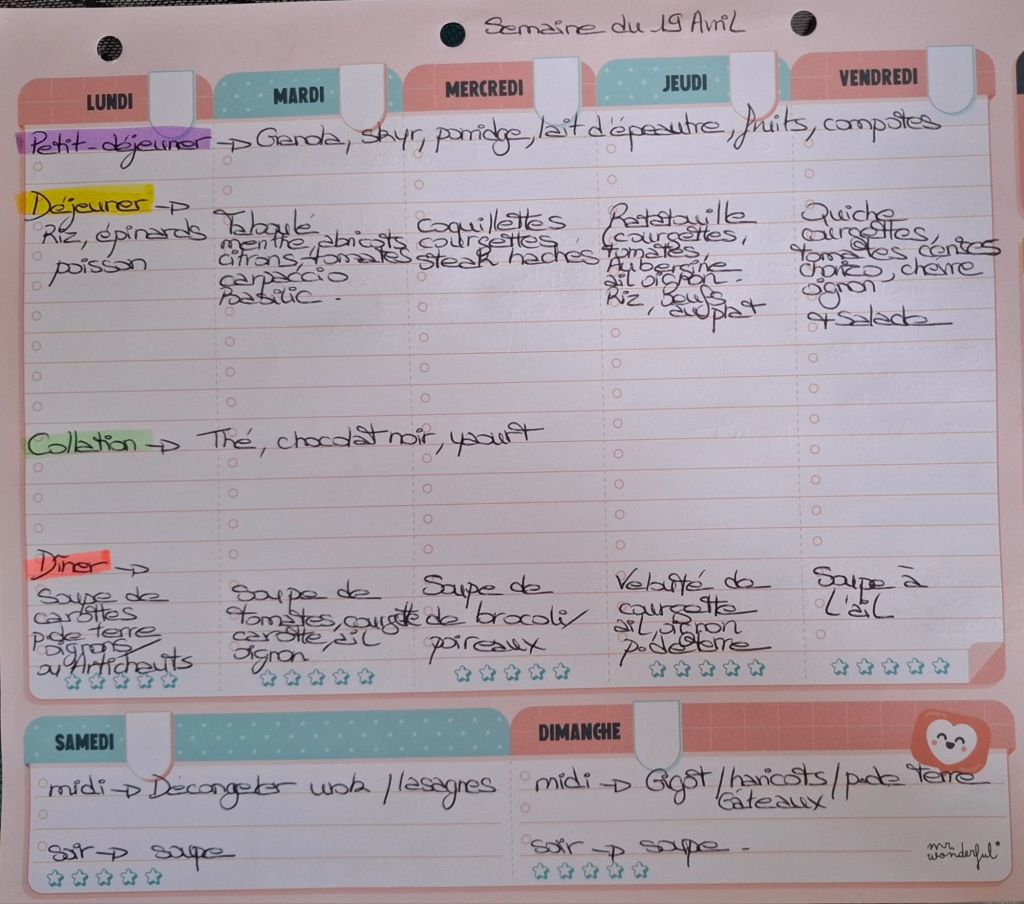 Semaine du 19 Avril
LUNDI
MARDI
MERCREDI
JEUDI
VENDREDI
Petit-déjeuner → Granola, skyr, porridge, lait d'épeautre, fruits, compotes
Déjeuner →
Riz, épinards
poisson
Taboulé
menthe, abricots
citrons, tomates
carpaccio
Basilic.
Coquillettes
courgettes
steak hachés
Ratatouille
(courgettes,
tomates,
Aubergine
ail oignon.
Riz, oeufs
au plat
Quiche
courgettes,
tomates cerises
chorizo, chèvre
oignon
+ Salade
Collation → Thé, chocolat noir, yaourt
Dîner →
Soupe de
carottes
p de terre
oignons/
ou Artichauts
Soupe de
tomates, courgette
carotte, ail
oignon
Soupe de
de brocoli/
poireaux
Velouté de
courgette
ail, oignon
p. de terre
Soupe à
L'ail
SAMEDI
midi → Décongeler wok / lasagnes
soir → soupe
DIMANCHE
midi → Gigot / haricots / p de terre
Gâteaux
soir → soupe.
mr. wonderful*